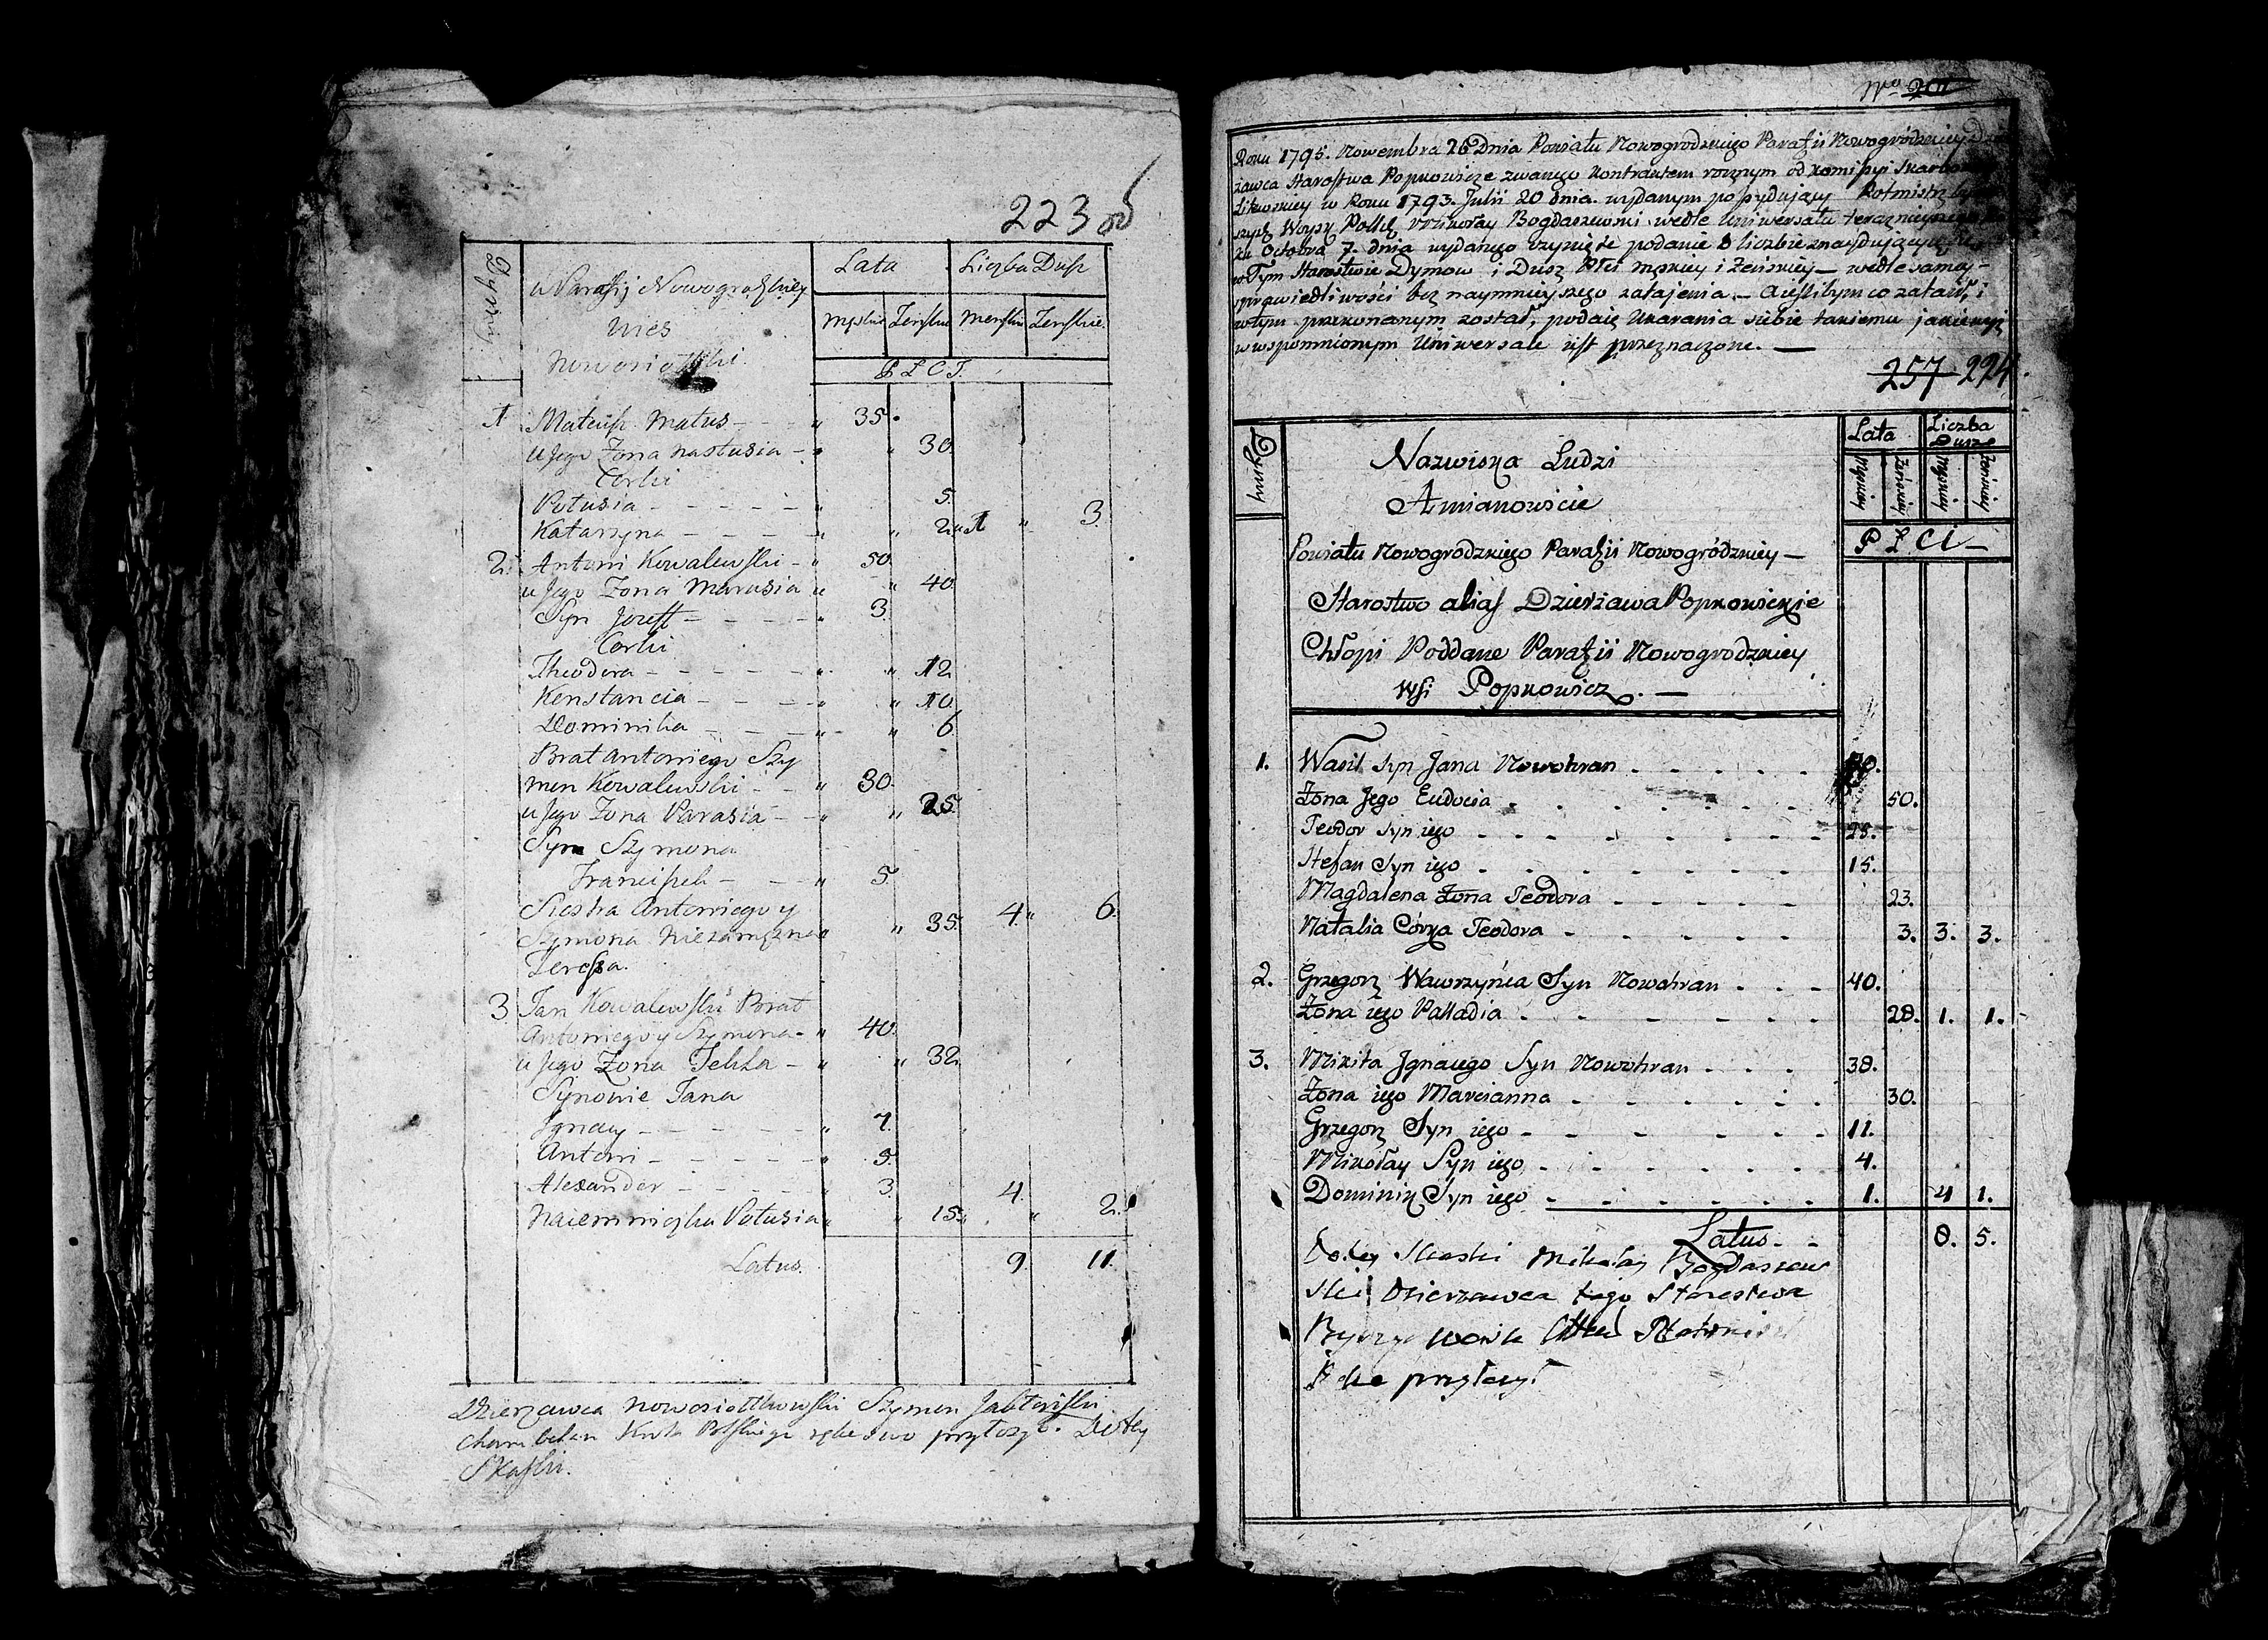 223 об
Dymy
w Parafij Nowogrodzkiey
Lata
Liczba Dusz
Wieś
Męskie Zenskie Menskie Zenskie.
Nowosiołki.
P Ł C I.
1 Mateusz Matus - - - " 35.
u Jego Zona Nastusia - " " 30.
Corki
Połusia - - - - - " 5.
Katarzyna - - - - " " 2. " 1 " 3.
2. Antoni Kowalewski - " 50.
u Jego Zona Marusia " " 40.
Syn Jozeff - - - - " 3.
Corki
Theodora - - - - - " " 12.
Konstancia - - - - " " 10.
Dominika - - - - " " 6.
Brat Antoniego Szy
mon Kowalewski - - " 30.
u Jego Zona Parasia - - " " 25.
Syn Szymona
Franciszek - - - " 5.
Siostra Antoniego y 4. " 6.
Szymona Niezamężna " " 35.
Teressa.
3 Jan Kowalewski Brat
Antoniego y Szymona - " 40.
u Jego Zona Tekla - " " 32.
Synowie Jana
Ignacy - - - - - " 7.
Antoni - - - - - " 5.
Alexander - - - - " 3. 4.
Naiemniczka Połusia " " 15. " 2.
Latus. 9. 11.
Dzierzawca Nowosiołkowski Szymon Jabłoński
Chambelan Krola Polskiego rękę swo przyłozył. Do tey
Skaski.
Nro 201
Roku 1795. Nowembra 26 Dnia Powiatu Nowogrodzkiego Parafii Nowogródzkiey
żawca Starostwa Popkowicze zwanego Kontraktem rocznym od Komissyi Skarbowey
Litewskiey w Roku 1793. Julii 20 dnia. wydanym possydujący Rotmistrz
szych Woysk Polsk. Mikołay Bogdaszewski wedle Uniwersału teraznieyszego
ku Octobra 7. dnia wydanego czynię te podanie o liczbie znaydujących się
w Tym Starostwie Dymow i Dusz Płci męskiey i Zeńskiey — wedle samey -
sprawiedliwości bez naymnieyszego zatajenia. — A jeślibym co zataił, i
w tym przekonanym został, podaię Ukarania siebie takiemu jakie jest
w wspomnionym Uniwersale iest przeznaczone. —
257 224.
Dymy
Nazwiska Ludzi
Lata
Liczba Dusz
Męskiey Zeńskiey Męskiey Zeńskiey
A mianowicie
P Ł C i —
Powiatu Nowogrodzkiego Parafii Nowogródzkiey —
Starostwo alias Dzierżawa Popkowickie
Chłopi Poddane Parafii Nowogrodzkiey
Wsi Popkowicz. —
1. Wasil Syn Jana Nowohran . . . . .
Żona Jego Eudocia . . . . . . . 50.
Teodor Syn iego . . . . . . . 25.
Stefan Syn iego . . . . . . . 15.
Magdalena Żona Teodora . . . . . 23.
Natalia Córka Teodora . . . . . 3. 3. 3.
2. Grzegorz Wawrzyńca Syn Nowohran . . . 40.
Żona iego Palladia . . . . . . 28. 1. 1.
3. Mikita Jgnacego Syn Nowohran . . . 38.
Żona iego Marcianna . . . . . . 30.
Grzegorz Syn iego . . . . . . 11.
Mikołay Syn iego . . . . . . 4.
Dominik Syn iego . . . . . . 1. 4 1.
Latus - - 8. 5.
Do tey Skaski Mikołay Bogdaszew
ski Dzierzawca tego Starostwa
Rotmistrz
Rękę przyłozył